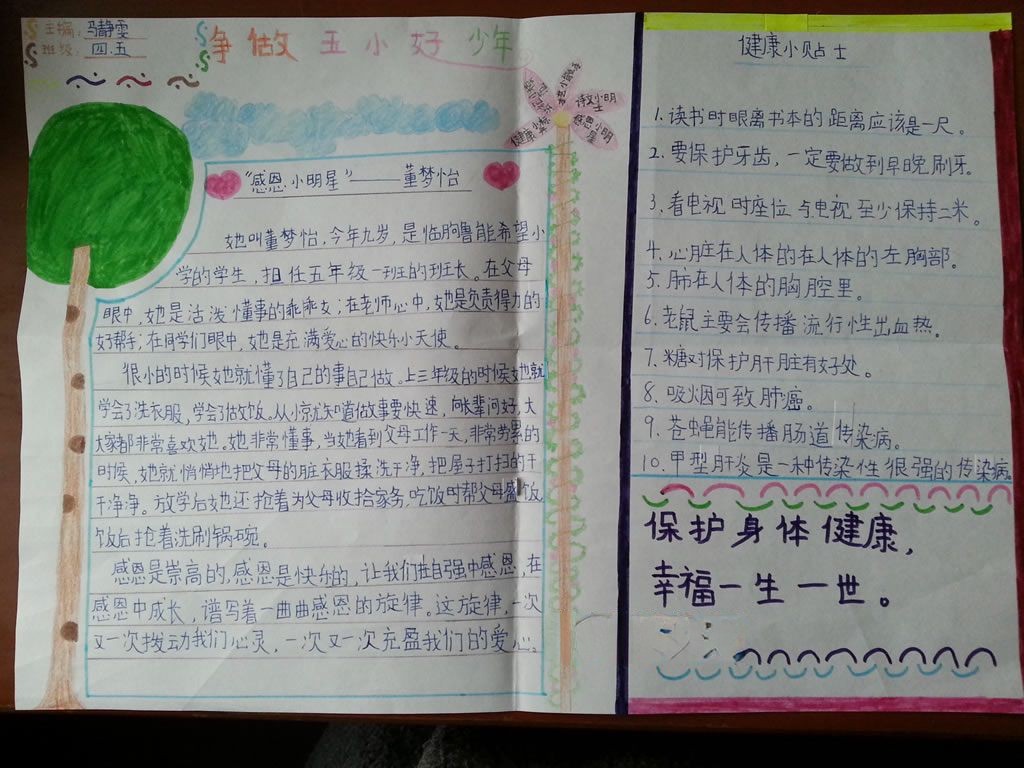 主编：马静雯
班级：四.五
争做五小好少年
诗文小明士
感恩小明星
健康小标兵
"感恩小明星"——董梦怡
她叫董梦怡，今年九岁，是临朐鲁能希望小
学的学生，担任五年级一班的班长。在父母
眼中，她是活泼懂事的乖乖女；在老师心中，她是负责得力的
好帮手；在同学们眼中，她是充满爱心的快乐小天使。
很小的时候她就懂了自己的事自己做。上三年级的时候她就
学会了洗衣服，学会了做饭。从小就知道做事要快速，向长辈问好，大
大家都非常喜欢她。她非常懂事，当她看到父母工作一天，非常劳累的
时候，她就悄悄地把父母的脏衣服揉洗干净，把屋子打扫的干
干净净。放学后她还抢着为父母收拾家务，吃饭时帮父母盛饭，
饭后抢着洗刷锅碗。
感恩是崇高的，感恩是快乐的，让我们在自强中感恩，在
感恩中成长，谱写着一曲曲感恩的旋律。这旋律，一次
又一次拨动我们心灵，一次又一次充盈我们的爱心。
健康小贴士
1.读书时眼离书本的距离应该是一尺。
2.要保护牙齿，一定要做到早晚刷牙。
3.看电视时座位与电视至少保持二米。
4.心脏在人体的在人体的左胸部。
5.肺在人体的胸腔里。
6.老鼠主要会传播流行性出血热。
7.糖对保护肝脏有好处。
8.吸烟可致肺癌。
9.苍蝇能传播肠道传染病。
10.甲型肝炎是一种传染性很强的传染病。
保护身体健康，
幸福一生一世。